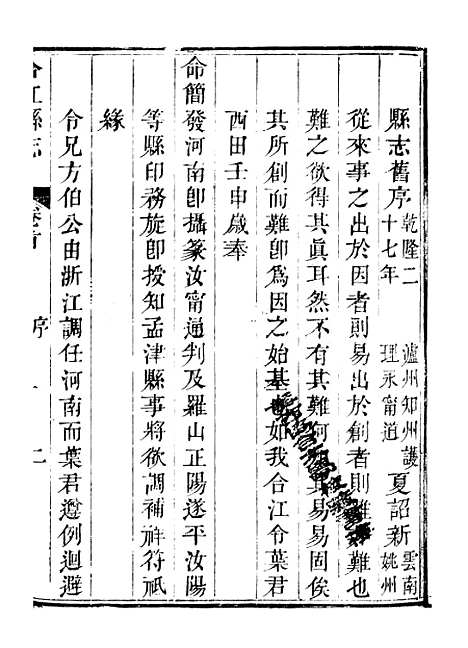 縣志舊序 乾隆二十七年 瀘州知州護理永甯道 夏詔新 雲南姚州
從來事之出於因者則易出於創者則難難也
難之欲得其眞耳然不有其難何 其易易固俟
其所創而難卽爲因之始基也如我合江令葉君
西田壬申歲奉
命簡發河南卽攝篆汝甯通判及羅山正陽遂平汝陽
等縣印務旋卽授知孟津縣事將欲調補祥符祇
緣
令兄方伯公由浙江調任河南而葉君遵例迴避
合江縣志 卷首 序 一 二